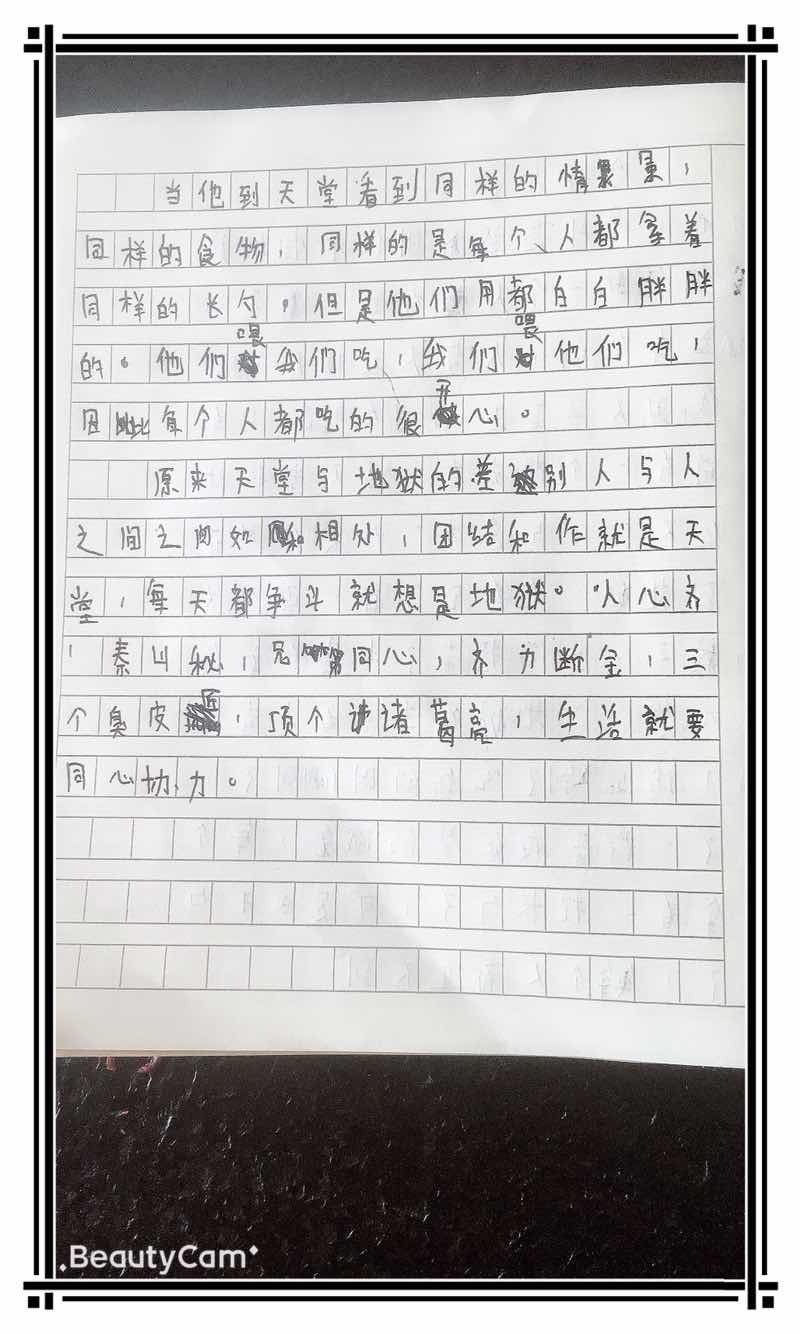 当他到天堂看到同样的情景,
同样的食物,同样的是每个人都拿着
同样的长勺。但是他们用都白白胖胖
的。他们喂我们吃,我们喂他们吃,
因此每个人都吃的很开心。
原来天堂与地狱的差别人与人
之间之间如和相处,团结和作就是天
堂,每天都争斗就想是地狱。人心齐
,泰山秘,兄弟同心,齐力断金,三
个臭皮匠,顶个诸葛亮,生活就要
同心协力。
BeautyCam